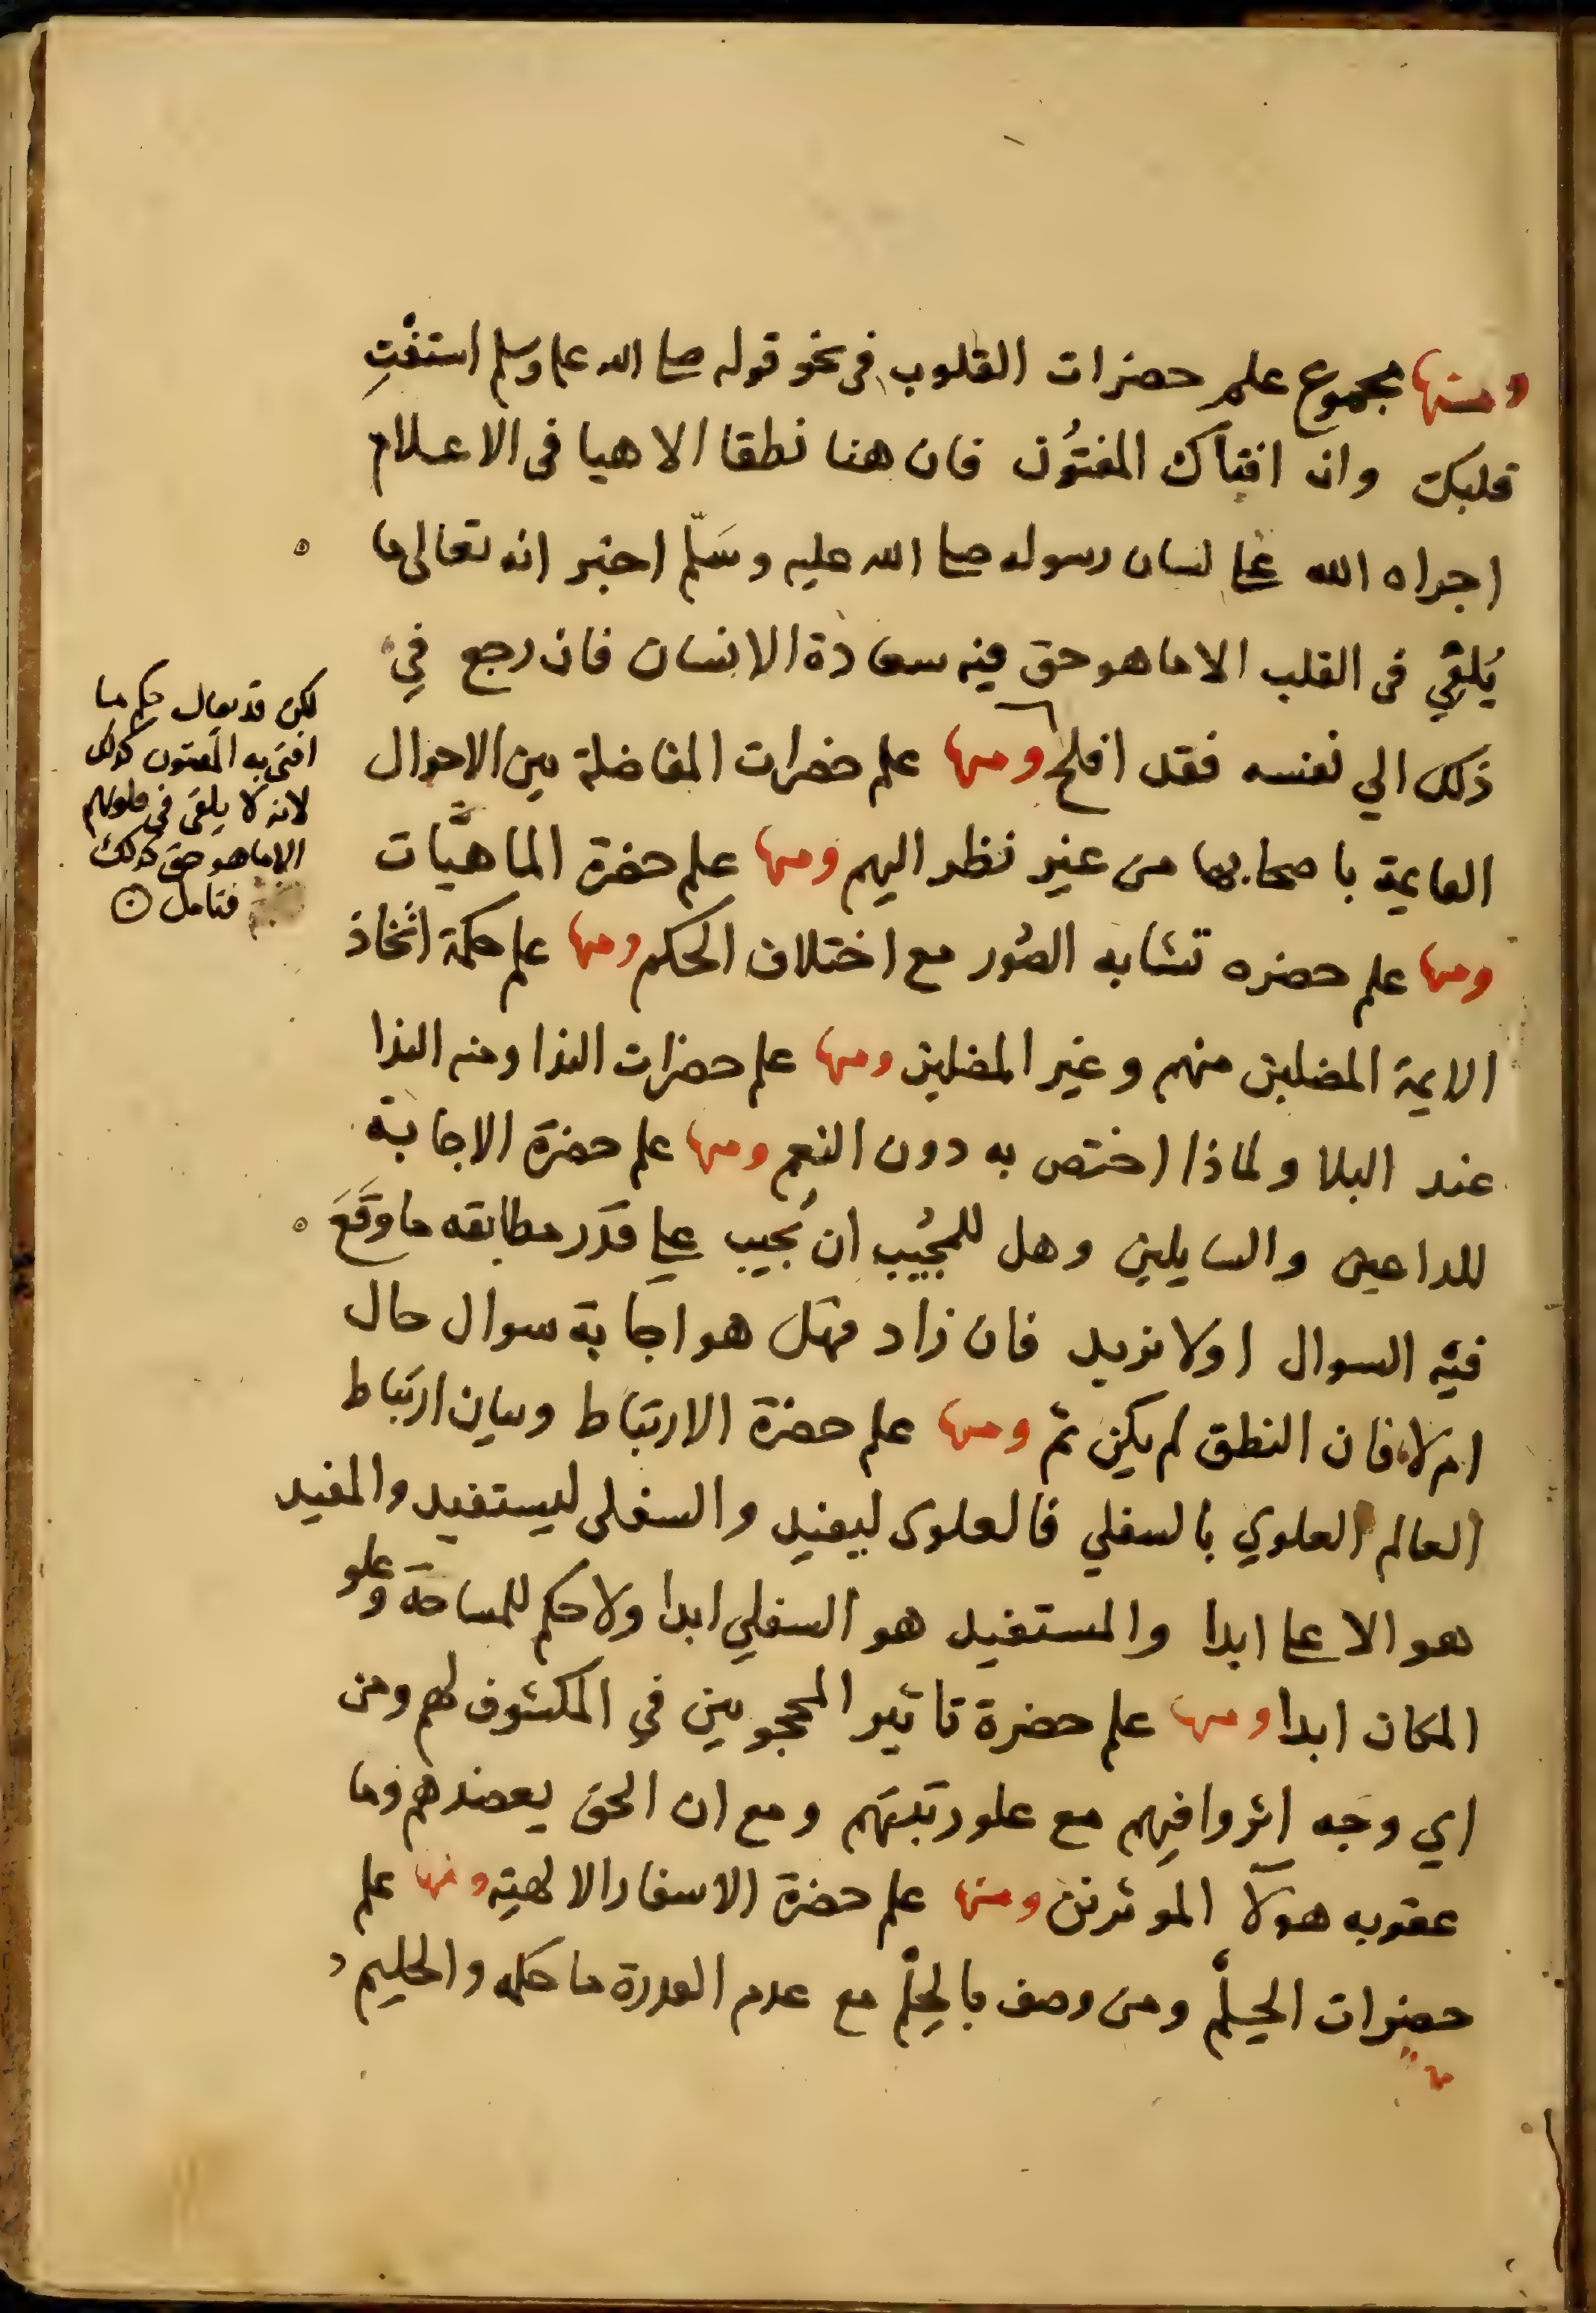 ومنها مجموع علم حضرات القلوب في نحو قوله صلى الله عليه وسلم استفْتِ
قلبك وان افتاك المفتُون فان هنا نطقا الاهيا فى الاعلام
اجراه الله على لسان رسوله صلى الله عليه وسَلّم اخبر انه تعالى ما
يُلقِي فى القلب الا ما هو حق فيه سعادة الانسان فان رجع فِي
ذلك الي نفسه فقد افلح ومنها علم حضرات المفاضلة بين الاحوال
القايمة باصحابها من غير نظر اليهم ومنها علم حضرة الماهيَّات
ومنها علم حضره تشابه الصُور مع اختلاف الحكم ومنها علم حكمة اتّخاذ
الايمة المضلين منهم وغير المضلين ومنها علم حضرات الندا ومنه الندا
عند البلا ولماذا اختص به دون النعم ومنها علم حضرة الاجابة
للداعين والسايلين وهل للمجُيب ان يُجيب على قدَر مطابقه ما وَقَعَ
فيْه السوال اولا نزيد فان زاد فهَل هو اجابة سوال حال
ام لا فان النطق لم يكن ثم ومنها علم حضرة الارتباط وبيان ارتباط
العالم العلوي بالسفلي فالعلوى ليفيد والسفلى ليستفيد والمفيد
هو الاعلى ابدا والمستفيد هو السفلي ابدا ولا حكم للمساحة وعلو
المكان ابدا ومنها علم حضرة تاثير المحجوبين في المكشوف لهم ومن
اي وجه اثروا فيهم مع علو رتبتهم ومع ان الحق يعضدهم وما
عقوبه هولآ الموثرين ومنها علم حضرة الاسفار الالهيّه ومنها علم
حضرات الحِلْم ومن وصف بالحِلْم مع عدم القدرة ما حكمه والحليم
لكن قد يقال حكم ما
افتى به المفتون كذلك
لانه لا يلقى في قلوبهم
الا ما هو حق كذلك
فتامل